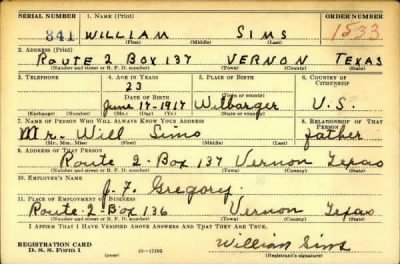 SERIAL NUMBER 1. NAME (Print) ORDER NUMBER
841 WILLIAM SIMS 1533
(First) (Middle) (Last)
2. ADDRESS (Print)
ROUTE 2 BOX 137 VERNON TEXAS
(Number and street or R. F. D. number) (Town) (County) (State)
3. TELEPHONE 4. AGE IN YEARS 5. PLACE OF BIRTH 6. COUNTRY OF CITIZENSHIP
23
DATE OF BIRTH
June-17-1917 Wilbarger U.S.
(Exchange) (Number) (Mo.) (Day) (Yr.) (Town or county) (State or country)
7. NAME OF PERSON WHO WILL ALWAYS KNOW YOUR ADDRESS 8. RELATIONSHIP OF THAT PERSON
Mr. Will Sims father
(Mr., Mrs., Miss) (First) (Middle) (Last)
9. ADDRESS OF THAT PERSON
Route 2-Box 137 Vernon Texas
(Number and street or R. F. D. number) (Town) (County) (State)
10. EMPLOYER'S NAME
J. F. Gregory
11. PLACE OF EMPLOYMENT OR BUSINESS
Route-2-Box 136 Vernon Texas
(Number and street or R. F. D. number) (Town) (County) (State)
I AFFIRM THAT I HAVE VERIFIED ABOVE ANSWERS AND THAT THEY ARE TRUE.
REGISTRATION CARD
D. S. S. Form 1 (over) 16-17105 William Sims